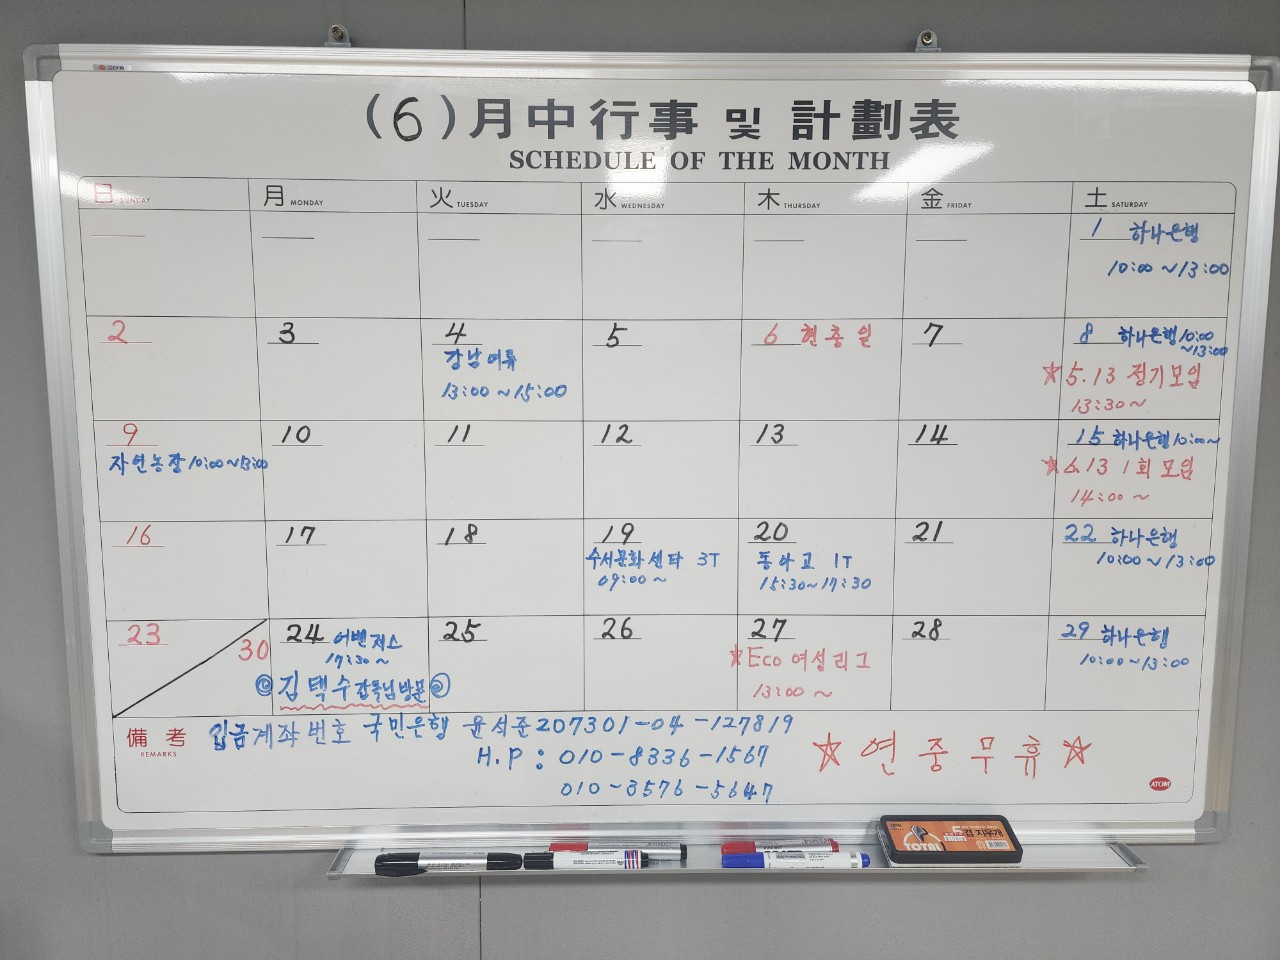 (6)月中行事 및 計劃表
SCHEDULE OF THE MONTH
日 SUNDAY 月 MONDAY 火 TUESDAY 水 WEDNESDAY 木 THURSDAY 金 FRIDAY 土 SATURDAY
1 하나은행
10:00 ~13:00
2 3 4 5 6 현충일 7 8 하나은행 10:00
~13:00
강남어류
13:00 ~15:00
☆5.13 정기모임
13:30~
9 10 11 12 13 14 15 하나은행 10:00~
자연농장 10:00~13:00
☆6.13 1회 모임
14:00~
16 17 18 19 20 21 22 하나은행
10:00~13:00
수서문화센타 3T
09:00~
동아고 1T
15:30~17:30
23 30 24 어벤져스
17:30~
◎김택수감독님방문◎
25 26 27 28 29 하나은행
10:00~13:00
☆Eco 여성리그
13:00 ~
備考 REMARKS
입금계좌번호 국민은행 윤석준207301-04-127819
H.P : 010-8336-1567
010-3576-5647
☆연중무휴☆
ATOM
TOTAL
5겹 지우개